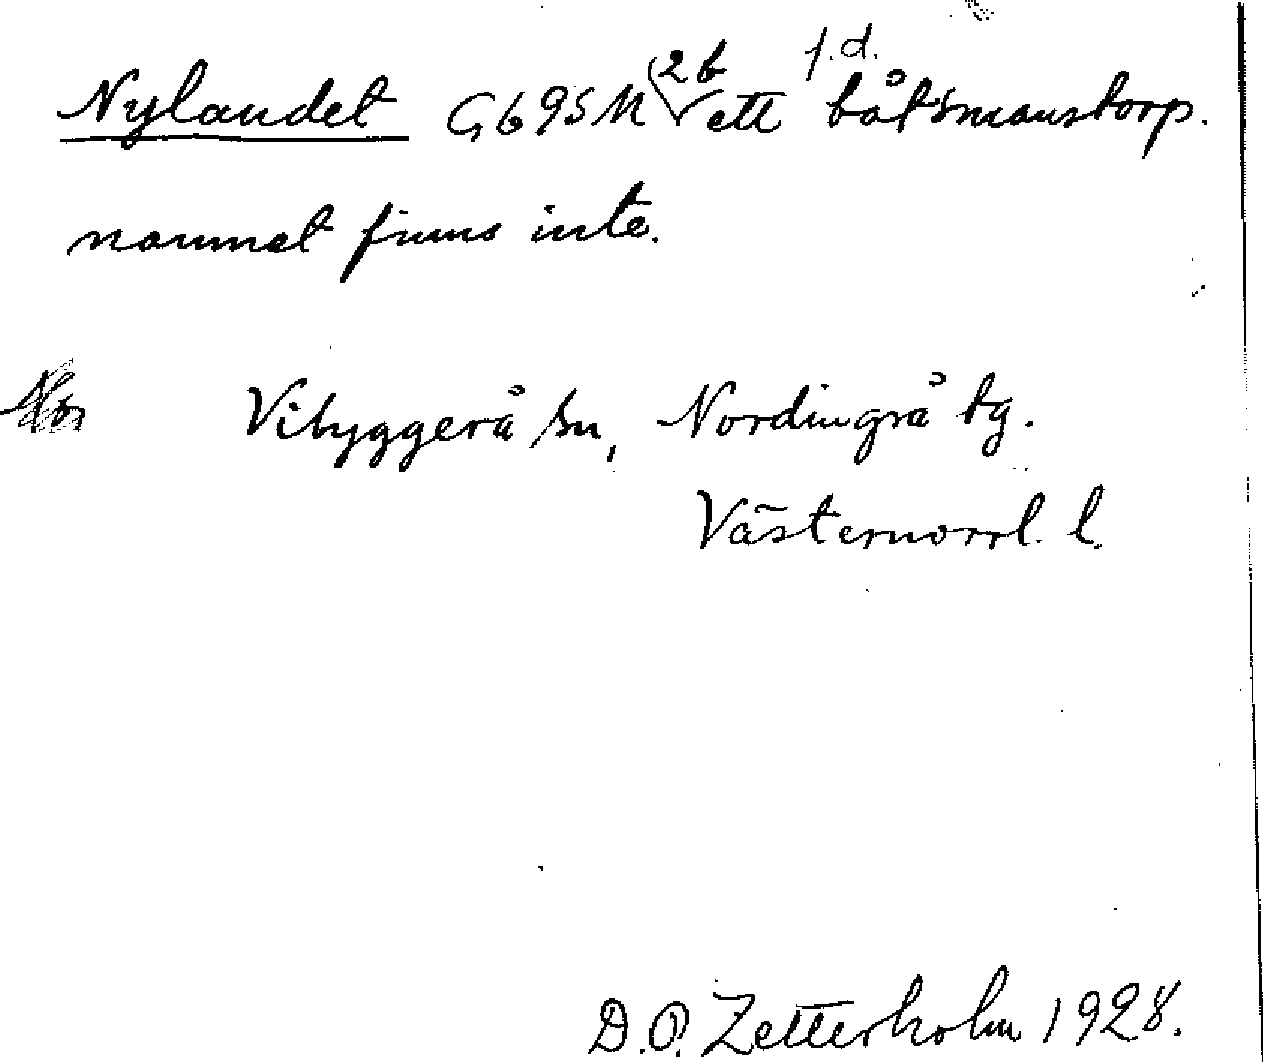 Nylandet G695M 2b ett f.d. båtsmanstorp.
namnet finns inte.
Vibyggerå sn, Nordingrå tg.
Västernorrl. l.
D.O. Zetterholm 1928.